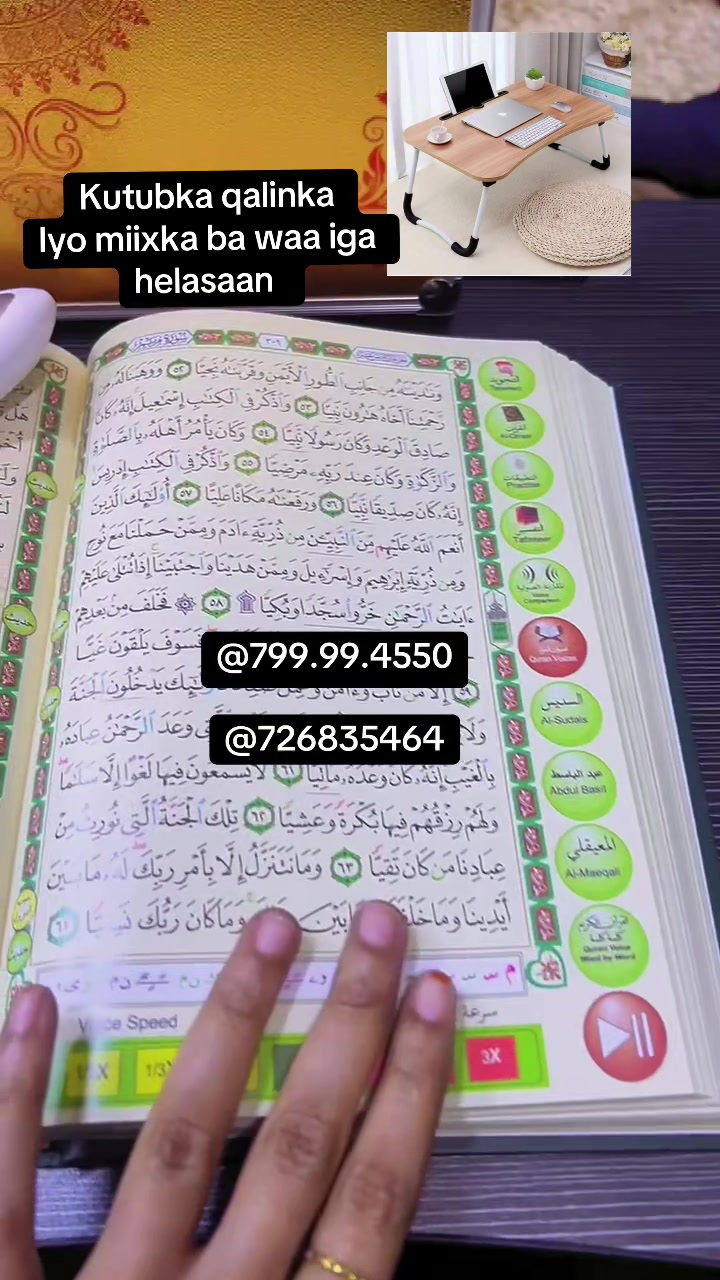 Kutubka qalinka
Iyo miixka ba waa iga
helasaan
٣٠٩
وَنَٰدَيْنَٰهُ مِن جَانِبِ ٱلطُّورِ ٱلْأَيْمَنِ وَقَرَّبْنَٰهُ نَجِيًّا ٥٢ وَوَهَبْنَا لَهُۥ مِن
رَّحْمَتِنَآ أَخَاهُ هَٰرُونَ نَبِيًّا ٥٣ وَٱذْكُرْ فِى ٱلْكِتَٰبِ إِسْمَٰعِيلَ إِنَّهُۥ كَانَ
صَادِقَ ٱلْوَعْدِ وَكَانَ رَسُولًا نَّبِيًّا ٥٤ وَكَانَ يَأْمُرُ أَهْلَهُۥ بِٱلصَّلَوٰةِ
وَٱلزَّكَوٰةِ وَكَانَ عِندَ رَبِّهِۦ مَرْضِيًّا ٥٥ وَٱذْكُرْ فِى ٱلْكِتَٰبِ إِدْرِيسَ
إِنَّهُۥ كَانَ صِدِّيقًا نَّبِيًّا ٥٦ وَرَفَعْنَٰهُ مَكَانًا عَلِيًّا ٥٧ أُو۟لَٰٓئِكَ ٱلَّذِينَ
أَنْعَمَ ٱللَّهُ عَلَيْهِم مِّنَ ٱلنَّبِيِّۦنَ مِن ذُرِّيَّةِ ءَادَمَ وَمِمَّنْ حَمَلْنَا مَعَ نُوحٍ
وَمِن ذُرِّيَّةِ إِبْرَٰهِيمَ وَإِسْرَٰٓءِيلَ وَمِمَّنْ هَدَيْنَا وَٱجْتَبَيْنَآ إِذَا تُتْلَىٰ عَلَيْهِمْ
ءَايَٰتُ ٱلرَّحْمَٰنِ خَرُّوا۟ سُجَّدًا وَبُكِيًّا ۩ ٥٨ ۞ فَخَلَفَ مِنۢ بَعْدِهِمْ
فَسَوْفَ يَلْقَوْنَ غَيًّا
@799.99.4550
٥٩ إِلَّا مَن تَابَ وَءَامَنَ وَعَمِلَ يَدْخُلُونَ ٱلْجَنَّةَ
وَلَا وَعَدَ ٱلرَّحْمَٰنُ عِبَادَهُۥ
@726835464
بِٱلْغَيْبِ إِنَّهُۥ كَانَ وَعْدُهُۥ مَأْتِيًّا ٦١ لَّا يَسْمَعُونَ فِيهَا لَغْوًا إِلَّا سَلَٰمًا
وَلَهُمْ رِزْقُهُمْ فِيهَا بُكْرَةً وَعَشِيًّا ٦٢ تِلْكَ ٱلْجَنَّةُ ٱلَّتِى نُورِثُ مِنْ
عِبَادِنَا مَن كَانَ تَقِيًّا ٦٣ وَمَا نَتَنَزَّلُ إِلَّا بِأَمْرِ رَبِّكَ لَهُۥ مَا بَيْنَ
أَيْدِينَا وَمَا خَلْفَنَا بَيْنَ وَمَا كَانَ رَبُّكَ نَسِيًّا ٦٤
Voice Speed
سرعة
1/3X
3X
التجويد
التطبيقات
Practise
التفسير
Tafseer
Quran Voices
السديس
Al-Sudais
عبد الباسط
Abdul Basit
المعيقلي
Al-Maeqali
Quran Voice
Word by Word
حديث
حديث